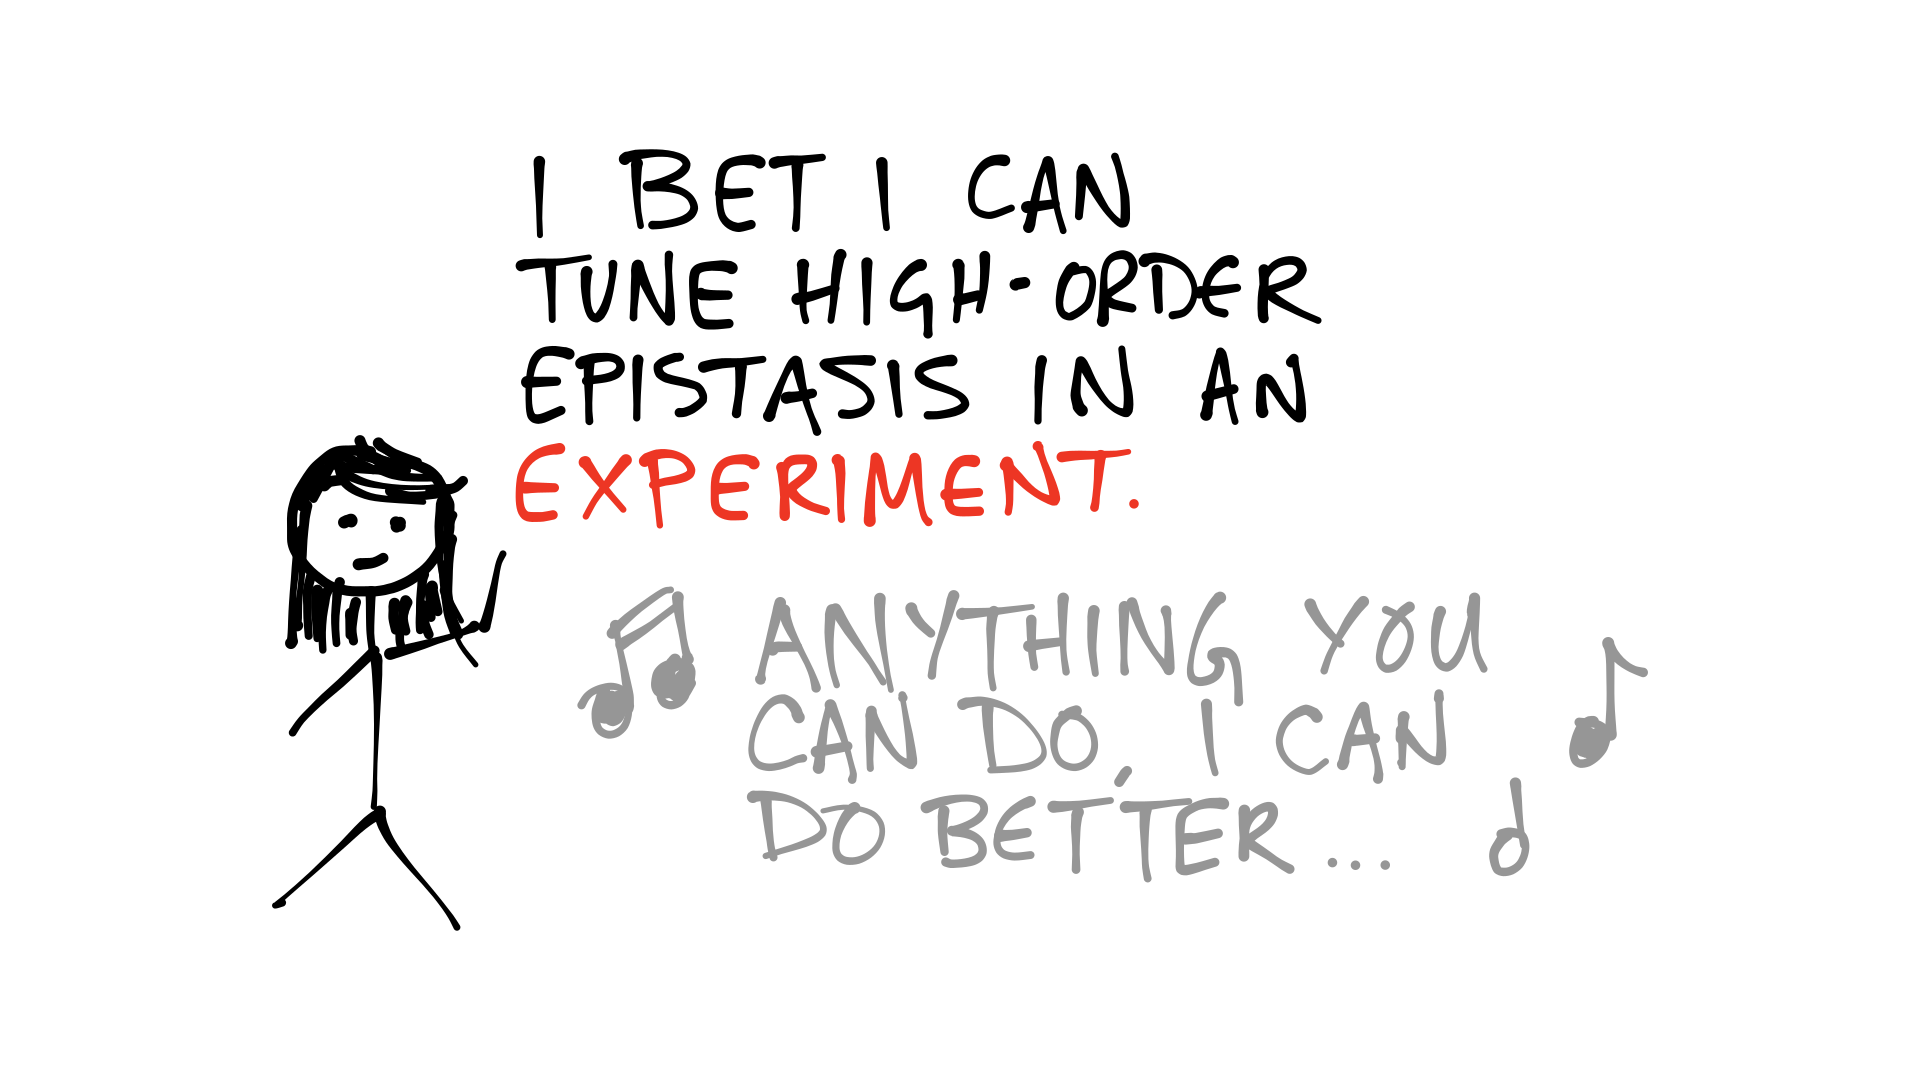 I BET I CAN
TUNE HIGH-ORDER
EPISTASIS IN AN
EXPERIMENT.
ANYTHING YOU
CAN DO, I CAN
DO BETTER...